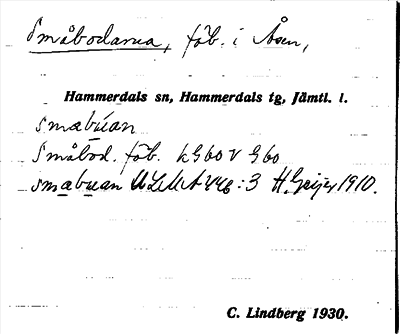 Småbodarna, fäb. i Åsen,
Hammerdals sn, Hammerdals tg, Jämtl. l.
smabuan
Småbod. fäb. kG60 v G60
smabuan ULMA 446:3 H. Geijer 1910.
C. Lindberg 1930.